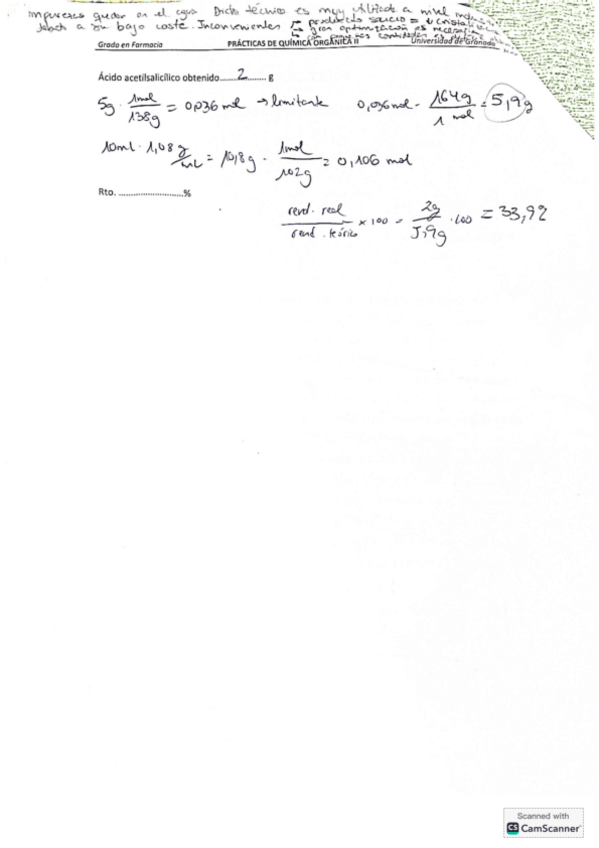 impurezas quedan en el agua Dicha técnica es muy utilizada a nivel
debido a su bajo coste. Inconvenientes → producto sucio = recristalización
→ gran optimización es necesaria
Grado en Farmacia PRÁCTICAS DE QUÍMICA ORGÁNICA II Universidad de Granada
Ácido acetilsalicílico obtenido......2.......... g
5g · 1mol / 138g = 0,036 mol → limitante 0,036 mol · 164g / 1 mol = 5,9g
10ml · 1,08 g/mL = 10,8g · 1mol / 102g = 0,106 mol
Rto. ...........................%
rend. real / rend. teórico × 100 = 2g / 5,9g · 100 = 33,92
Scanned with
CS CamScanner